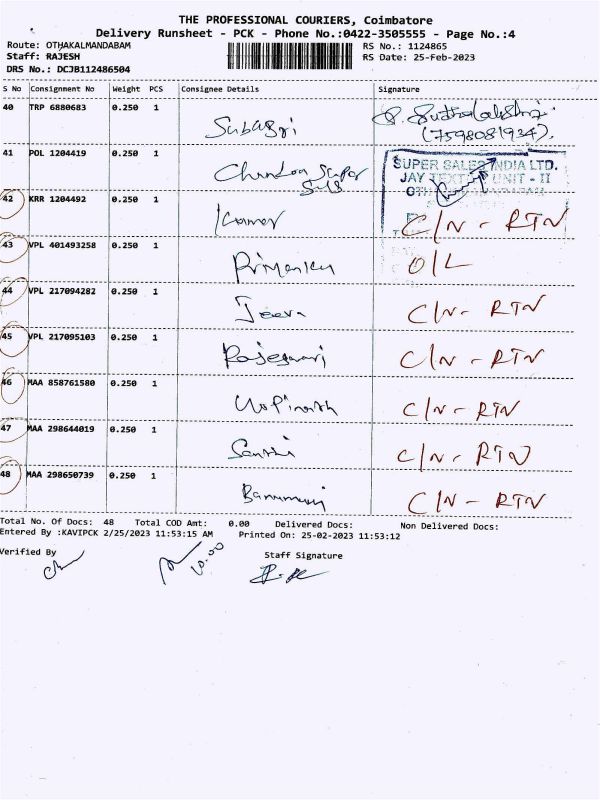 THE PROFESSIONAL COURIERS, Coimbatore
Delivery Runsheet - PCK - Phone No.:0422-3505555 - Page No.:4
Route: OTHAKALMANDABAM RS No.: 1124865
Staff: RAJESH RS Date: 25-Feb-2023
DRS No.: DCJB112486504
S No Consignment No Weight PCS Consignee Details Signature
40 TRP 6880683 0.250 1
Subasri
(7598081934).
41 POL 1204419 0.250 1
Chandra
SUPER SALES INDIA LTD.
JAY UNIT - II
42 KRR 1204492 0.250 1
Kumar C/N - RTN
43 VPL 401493258 0.250 1
Priyanka O/L
44 VPL 217094282 0.250 1
Jeeva C/N - RTN
45 VPL 217095103 0.250 1
Rajeswari C/N - RTN
46 MAA 858761580 0.250 1
Gopinath C/N - RTN
47 MAA 298644019 0.250 1
Santhi C/N - RTN
48 MAA 298650739 0.250 1
C/N - RTN
Total No. Of Docs: 48 Total COD Amt: 0.00 Delivered Docs: Non Delivered Docs:
Entered By :KAVIPCK 2/25/2023 11:53:15 AM Printed On: 25-02-2023 11:53:12
Verified By Staff Signature
10.00